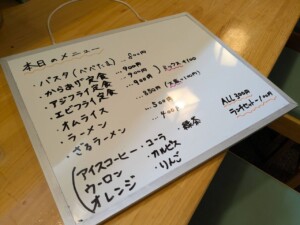 本日のメニュー
パスタ(ペペたま) …800円
からあげ定食 …900円
アジフライ定食 …900円
エビフライ定食 …900円
ミックス 950円
オムライス …850円(大盛+100円)
ラーメン …500円
ざるラーメン …400円
アイスコーヒー・コーラ・緑茶
ウーロン・カルピス
オレンジ・りんご
ALL 300円